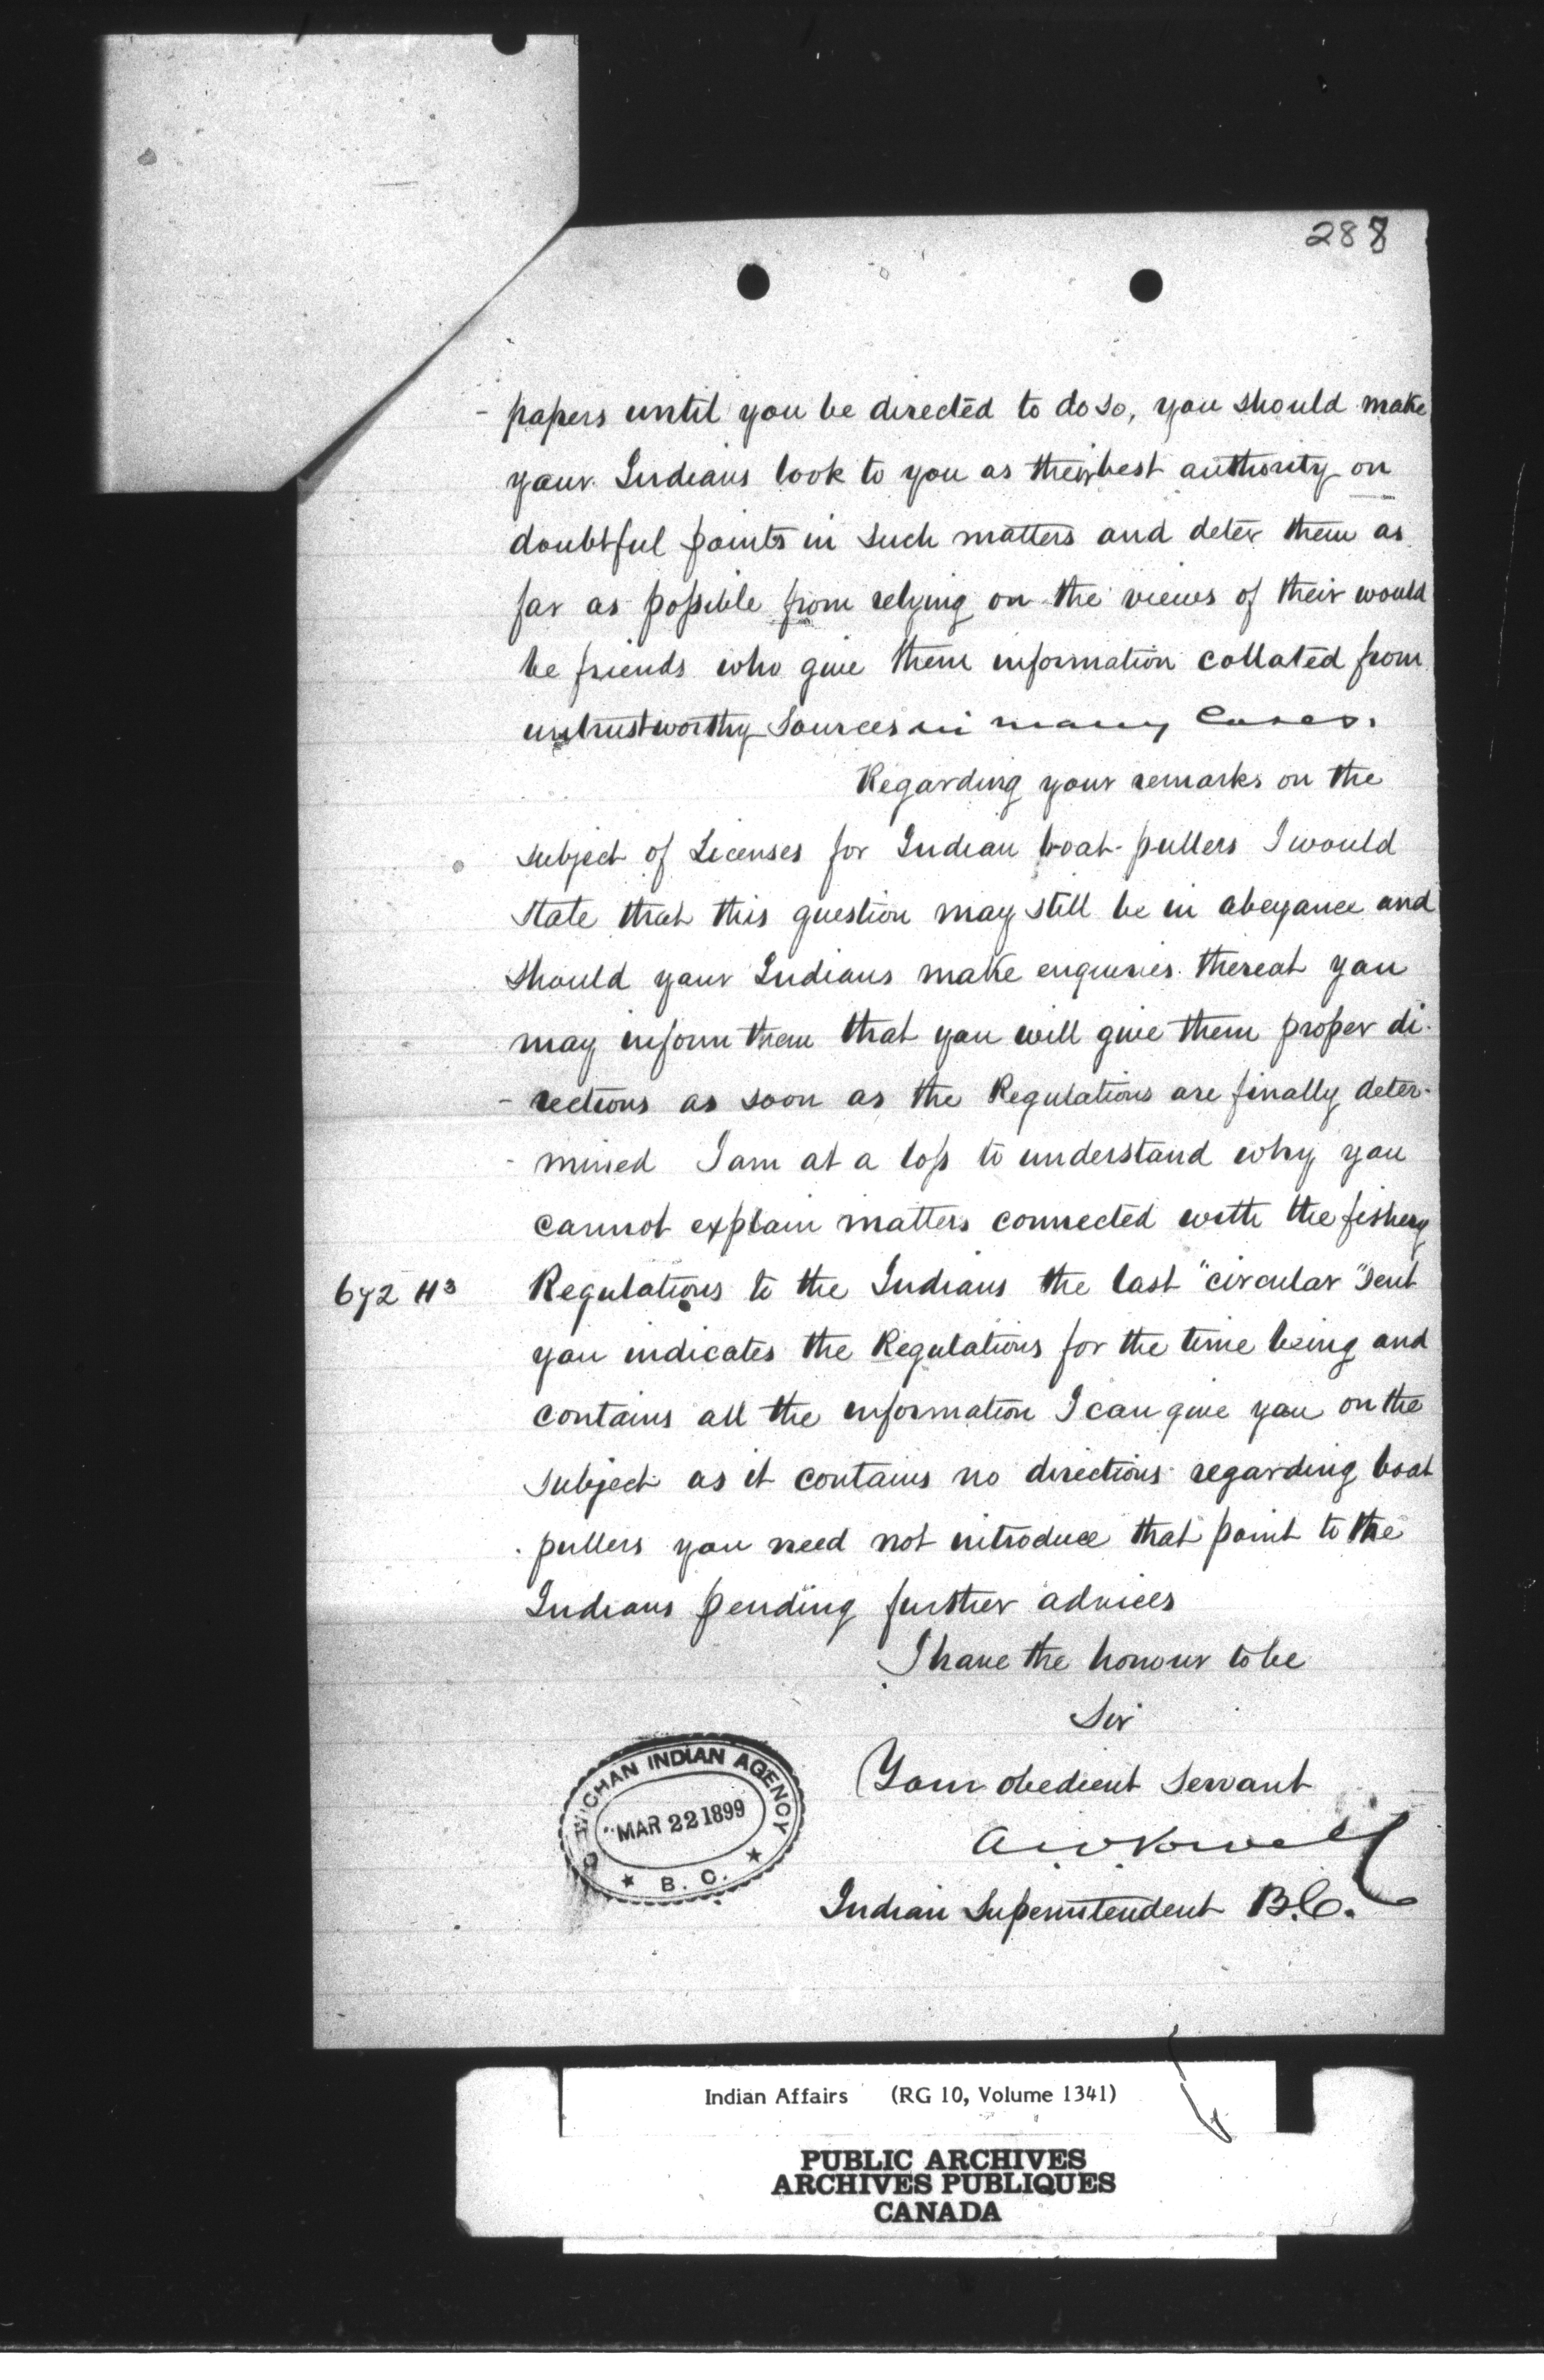 288
- papers until you be directed to do so, you should make
your Indians look to you as their best authority on
doubtful points in such matters and deter them as
far as possible from relying on the views of their would
be friends who give them information collated from
untrustworthy sources in many cases.
Regarding your remarks on the
subject of Licenses for Indian boat-pullers I would
state that this question may still be in abeyance and
should your Indians make enquiries thereat you
may inform them that you will give them proper di-
- rections as soon as the Regulations are finally deter-
- mined I am at a loss to understand why you
cannot explain matters connected with the fishery
Regulations to the Indians the last "circular" sent
you indicates the Regulations for the time being and
contains all the information I can give you on the
subject as it contains no directions regarding boat
pullers you need not introduce that point to the
Indians pending further advices
I have the honour to be
Sir
Your obedient servant
A W Vowell
Indian Superintendent B.C.
COWICHAN INDIAN AGENCY
MAR 22 1899
★ B. C. ★
Indian Affairs (RG 10, Volume 1341)
PUBLIC ARCHIVES
ARCHIVES PUBLIQUES
CANADA